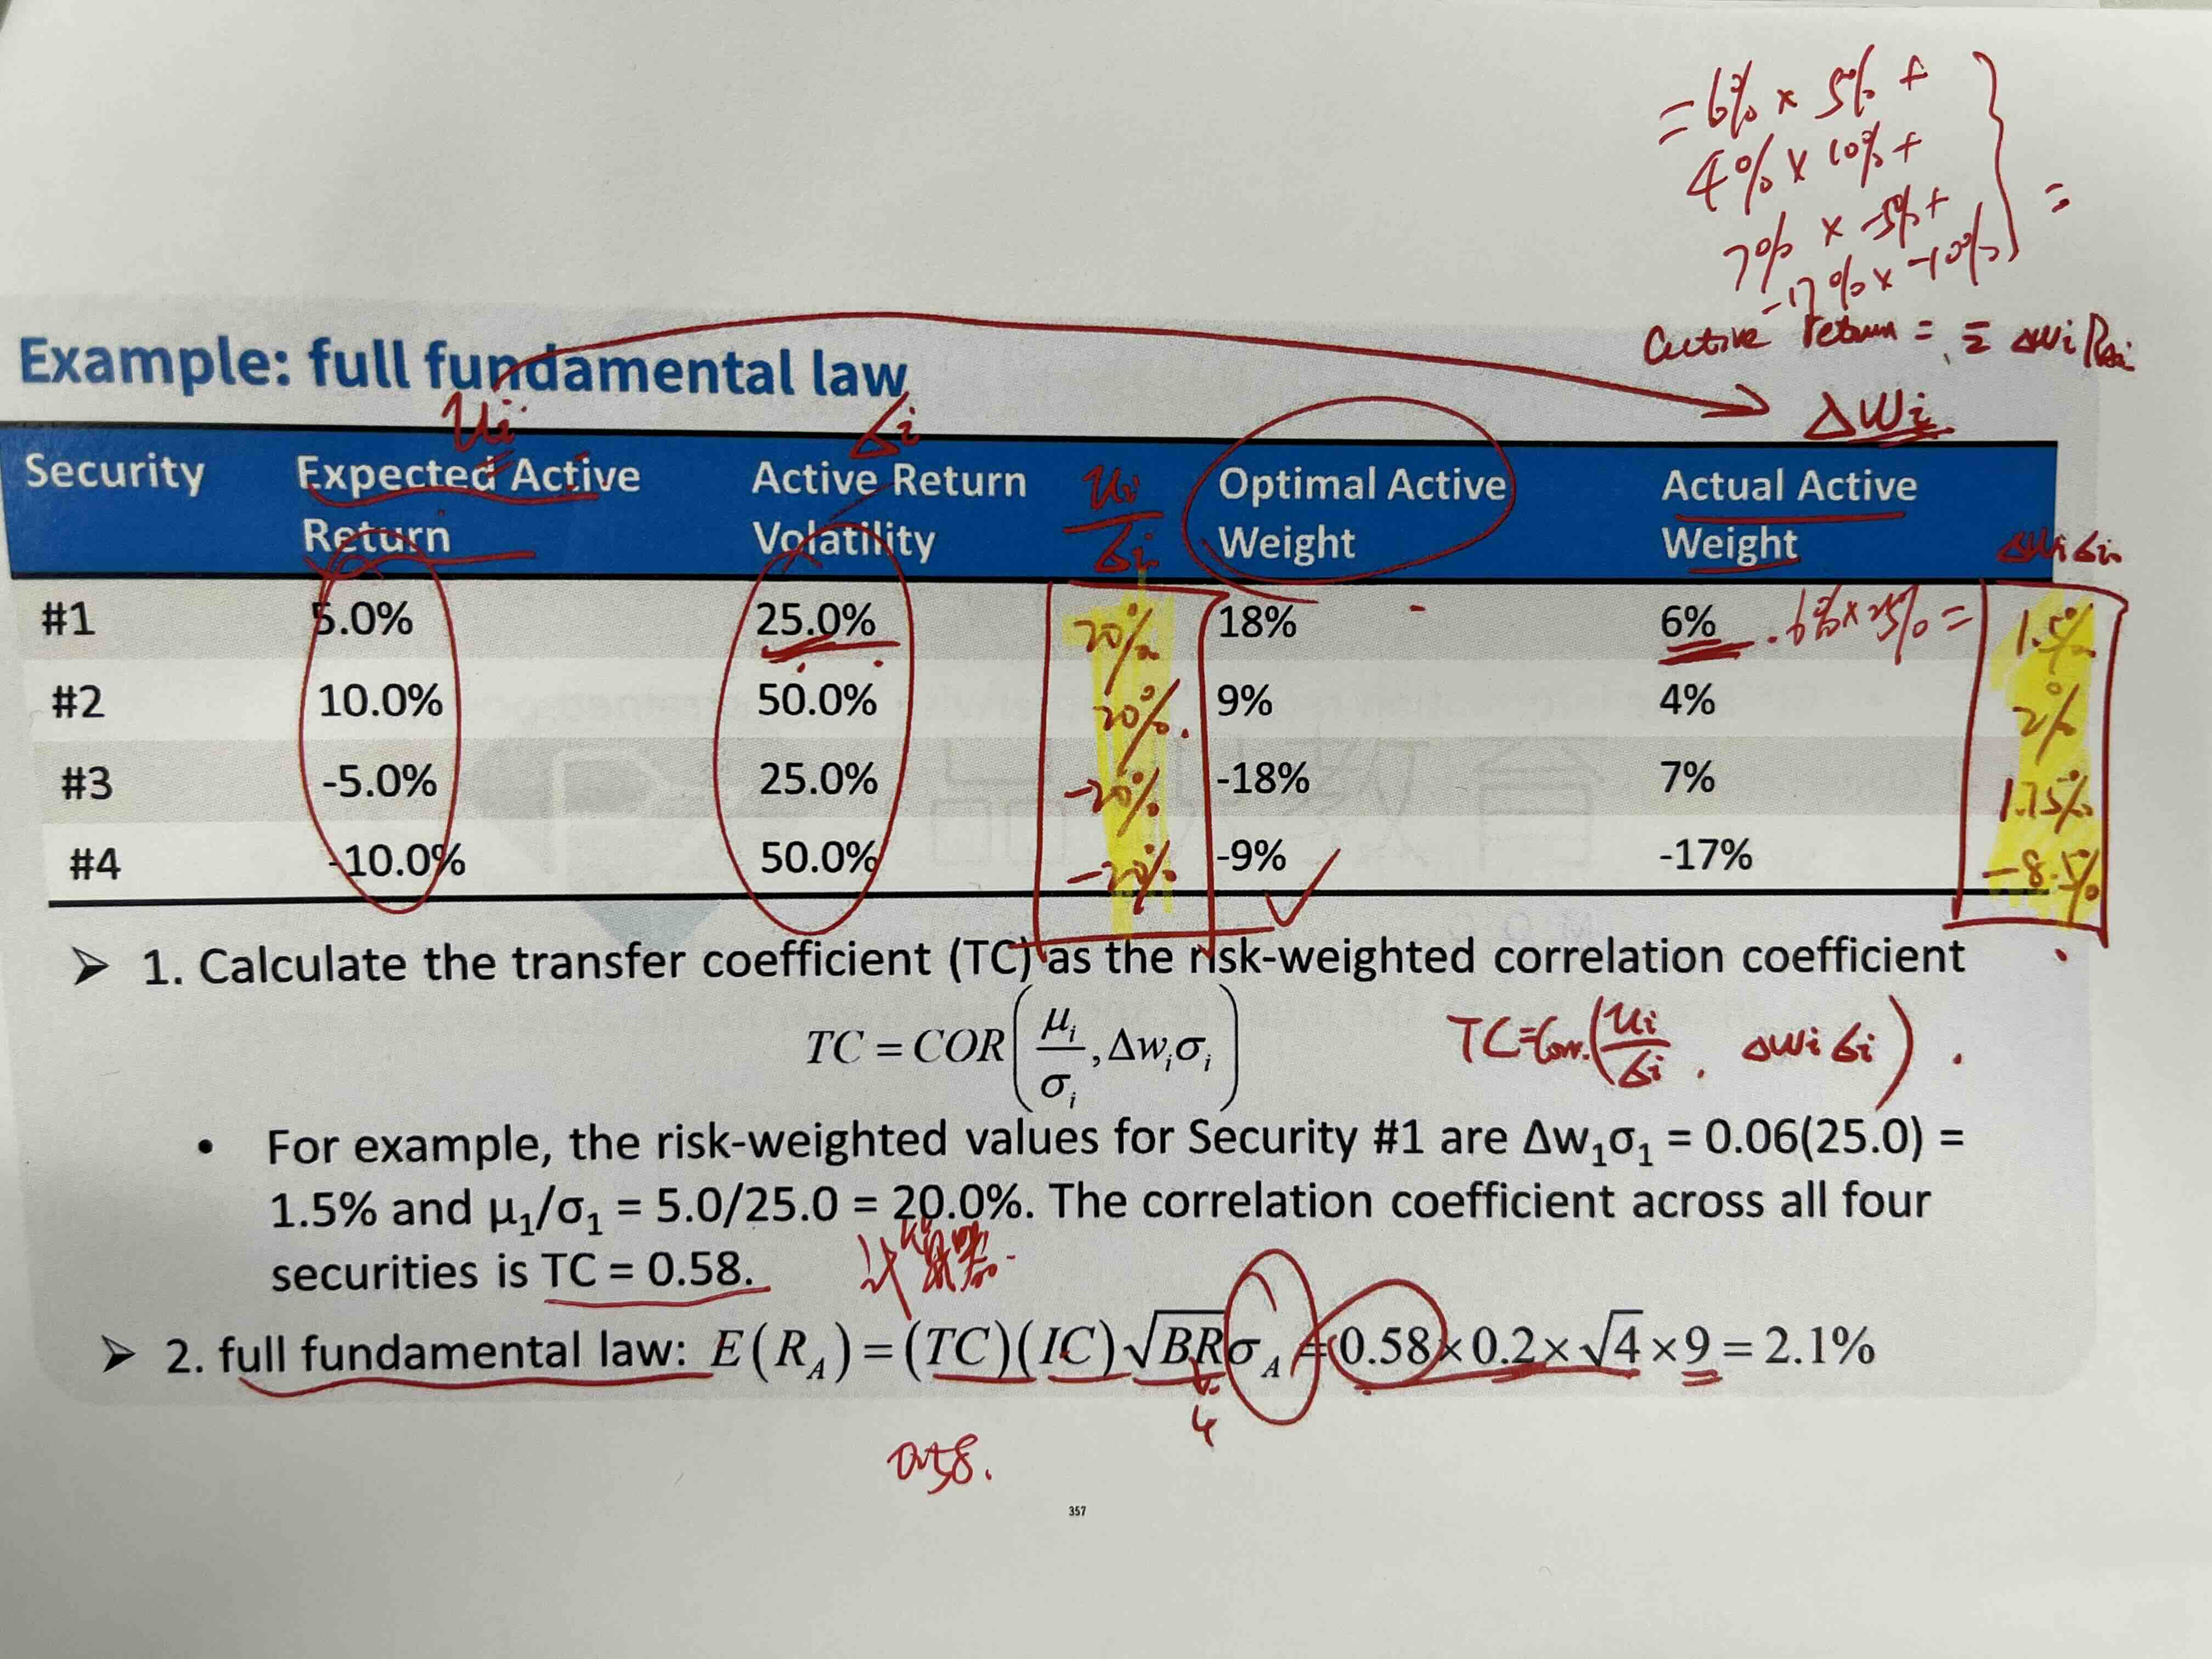 = 6% × 5% +
4% × 10% +
7% × -5% +
-17% × -10%
=
Active return = Σ ΔWi RAi
Example: full fundamental law
ui
σi
ΔWi
Security Expected Active Return Active Return Volatility ui/σi Optimal Active Weight Actual Active Weight ΔWiσi
#1 5.0% 25.0% 20% 18% 6% 6%×25%= 1.5%
#2 10.0% 50.0% 20% 9% 4% 2%
#3 -5.0% 25.0% -20% -18% 7% 1.75%
#4 -10.0% 50.0% -20% -9% -17% -8.5%
➤ 1. Calculate the transfer coefficient (TC) as the risk-weighted correlation coefficient
TC = COR(μi/σi, Δwiσi)
TC=Corr.(ui/σi, ΔWiσi).
• For example, the risk-weighted values for Security #1 are Δw₁σ₁ = 0.06(25.0) =
1.5% and μ₁/σ₁ = 5.0/25.0 = 20.0%. The correlation coefficient across all four
securities is TC = 0.58.
计算器
➤ 2. full fundamental law: E(R_A) = (TC)(IC)√BRσ_A = 0.58×0.2×√4×9 = 2.1%
4
0.58.
357